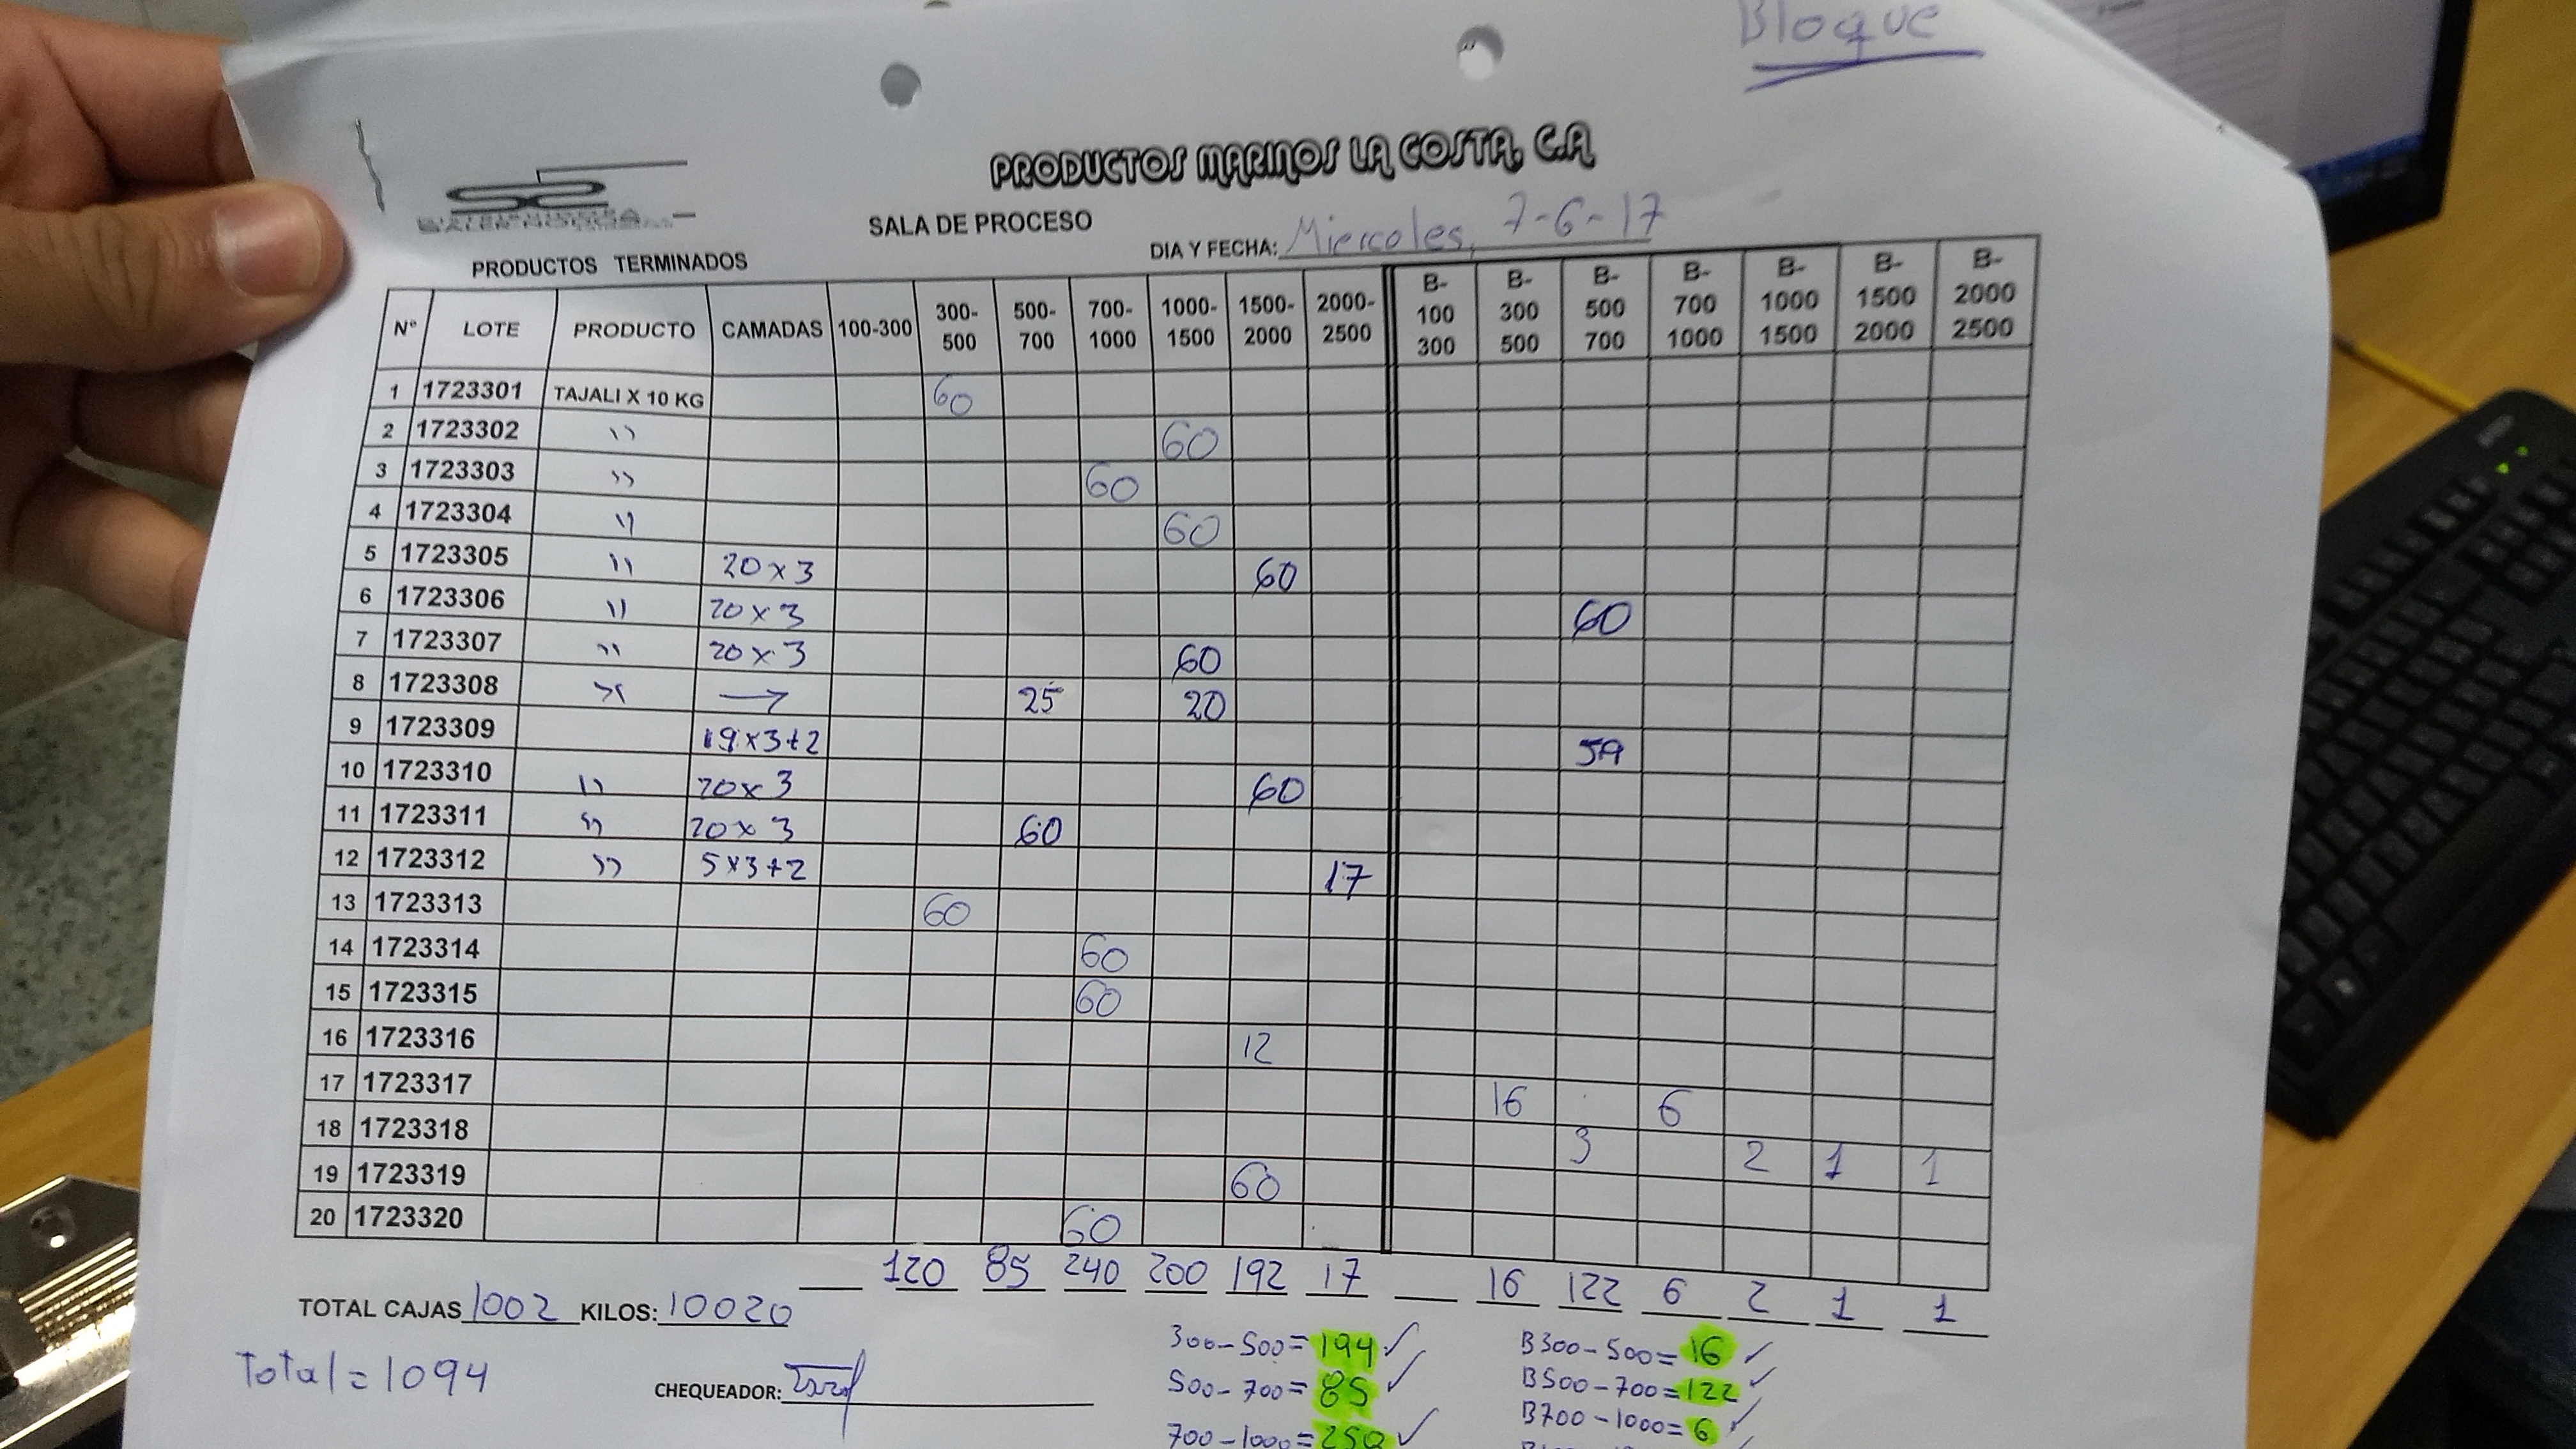 Bloque
PRODUCTOS MARINOS LA COSTA, C.A
SALA DE PROCESO
DIA Y FECHA: Miercoles, 7-6-17
PRODUCTOS TERMINADOS
N° LOTE PRODUCTO CAMADAS 100-300 300-500 500-700 700-1000 1000-1500 1500-2000 2000-2500 B-100 300 B-300 500 B-500 700 B-700 1000 B-1000 1500 B-1500 2000 B-2000 2500
1 1723301 TAJALI X 10 KG 60
2 1723302 '' 60
3 1723303 '' 60
4 1723304 '' 60
5 1723305 '' 20 x 3 60
6 1723306 '' 20 x 3 60
7 1723307 '' 20 x 3 60
8 1723308 '' → 25 20
9 1723309 19 x 3+2 59
10 1723310 '' 20x 3 60
11 1723311 '' 20 x 3 60
12 1723312 '' 5 x3+2 17
13 1723313 60
14 1723314 60
15 1723315 60
16 1723316 12
17 1723317 16 6
18 1723318 3 2 1 1
19 1723319 60
20 1723320 60
120 85 240 200 192 17 16 122 6 2 1 1
TOTAL CAJAS 1002 KILOS: 10020
Total = 1094
CHEQUEADOR:
300-500= 194 ✓
500-700= 85 ✓
700-1000= 250 ✓
B300-500= 16 ✓
B500-700= 122 ✓
B700-1000= 6 ✓